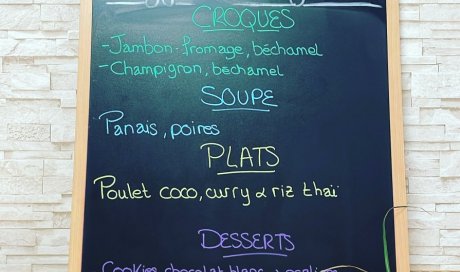 CROQUES
-Jambon-fromage, béchamel
-Champignon, béchamel
SOUPE
Panais, poires
PLATS
Poulet coco, curry & riz thaï
DESSERTS
Cookies chocolat blanc